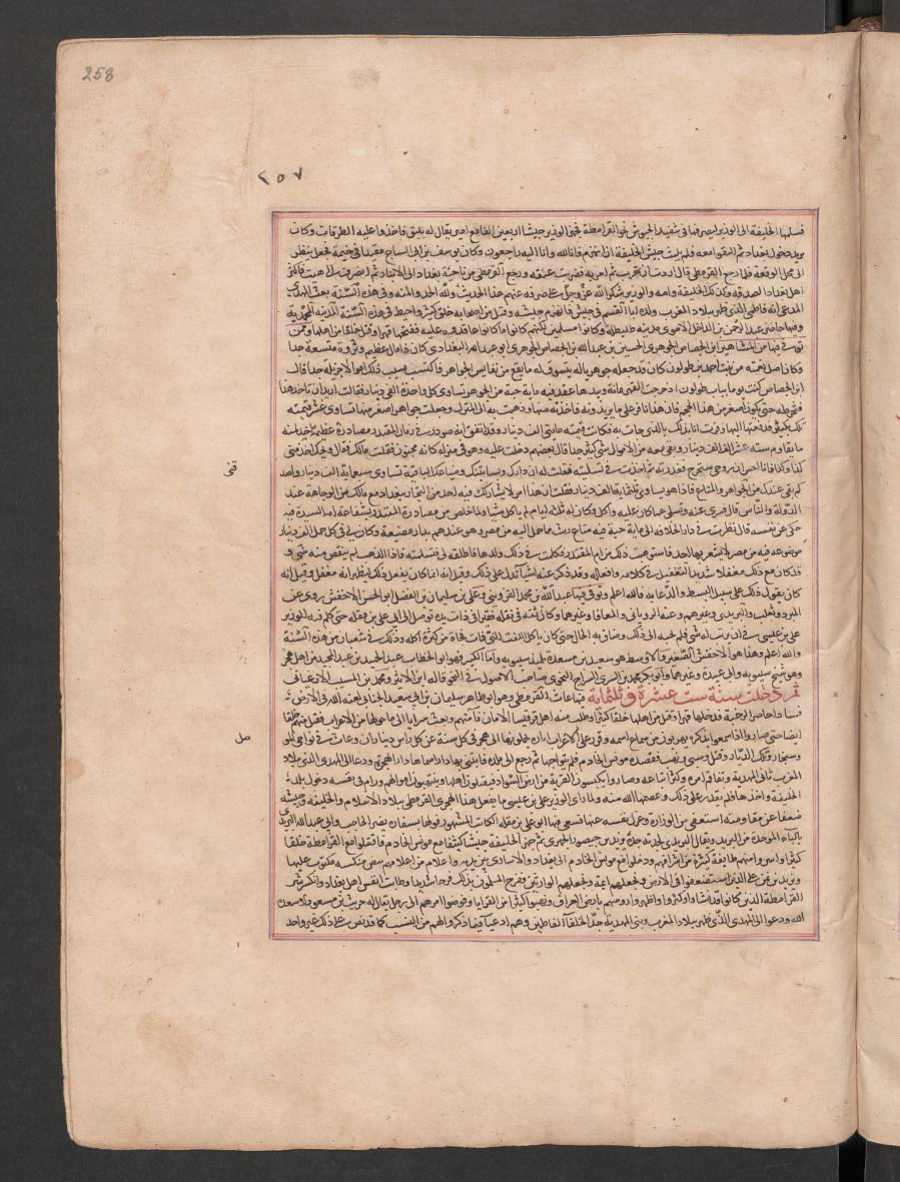 258
٢٥٧
فسلمها الخليفة الى الوزير ليصرفها في تنفيذ الجيوش نحو القرامطة فجهز الوزير جيشا اربعين الفا مع امير يقال له بليق فاخذوا عليه الطرقات وكان
يريد دخول بغداد ثم التقوا معه فلم يلبث جيش الخليفة ان انهزم فانا لله وانا اليه راجعون وكان يوسف بن ابي الساج مقيدا في خيمة فجعل ينظر
الى محل الوقعة فلما رجع القرمطي قال اردت ان تهرب ثم امر به فضربت عنقه ورجع القرمطي من ناحية بغداد الى الانبار ثم انصرف الى هيت فاكثر
اهل بغداد الصدقة وكذلك الخليفة وامه والوزير شكرا لله عز وجل على صرفه عنهم هذا الخبيث ولله الحمد والمنة وفي هذه السنة بعث المهدي
المدعي انه فاطمي الذي ظهر ببلاد المغرب ولده ابا القسم في جيش فانهزم جيشه وقتل من اصحابه خلق كثير واختط في هذه السنة المدينة المحمدية
وفيها حاصر عبد الرحمن بن الداخل الاموي مدينة طليطلة وكانوا مسلمين لكنهم كانوا نقضوا ما عاهدوه عليه ففتحها قهرا وقتل خلقا من اهلها وممن
توفي فيها من المشاهير ابن الجصاص الجوهري الحسين بن عبد الله بن الجصاص الجوهري ابو عبد الله البغدادي كان ذا مال عظيم وثروة متسعة جدا
وكان اصل نعمته من بيت احمد بن طولون كان قد جعله جوهريا له يتسوق له ما يقع من نفايس الجواهر فاكتسب بسبب ذلك اموالا جزيلة جدا قال
ابن الجصاص كنت يوما بباب طولون اذ خرجت القهرمانة وبيدها عقد فيه ماية حبة من الجوهر تساوي كل واحدة الفي دينار فقالت اريد ان تاخذ هذا
فتخرطه حتى يكون اصغر من هذا الحجم فان هذا نافر على ما يريدونه فاخذته منها وذهبت به الى المنزل وجعلت جواهر اصغر منها تساوي عشر قيمة
تلك بكثير فدفعتها اليها وفزت انا بذلك بالذي جات به فكانت قيمته مايتي الف دينار وقد اتفق انه صودر في زمان المقتدر مصادرة عظيمة اخذ منه
ما يقاوم ستة عشر الف الف دينار وبقي معه من الاموال شيء كثير جدا قال بعضهم دخلت عليه وهو في منزله كانه مجنون فقلت مالك فقال ويحك اخذ مني
كذا وكذا فانا احس ان روحي ستخرج فعذرته ثم اخذت في تسليته فقلت له ان دارك وبساتينك وضياعك الباقية تساوي سبعماية الف دينار واصدقني
كم بقي عندك من الجواهر والمتاع فاذا هو يساوي ثلثماية الف دينار فقلت ان هذا امر لا يشاركك فيه احد من التجار ببغداد مع مالك من الوجاهة عند
الدولة والناس قال فسري عنه وتسلى عما كان عليه واكل وكان له ثلث ايام لم ياكل شيئا ولما خلص من مصادرة المقتدر بشفاعة امه السيدة فيه
حكى عن نفسه قال نظرت في دار الخلافة الى ماية خيشة فيه متاع رث مما حمل اليه من مصر وهو عندهم بدار مضيعة وكان لي في كل حمل الف دينار
موضوعة فيه من مصر لا يشعر بها احد فاستوهبت ذلك من ام المقتدر فكلمت في ذلك ولدها فاطلقه لي فتسلمته فاذا الذهب لم ينقص منه شيء و
قد كان مع ذلك مغفلا شديد التغفيل في كلامه وافعاله وقد ذكر عنه اشياء تدل على ذلك وقيل انه انما كان يفعل ذلك ليظهر انه مغفل وقيل انه
كان يقول ذلك على سبيل البسط والدعابة فالله اعلم وتوفي فيها عبد الله بن محمد القزويني وعلي بن سليمان بن الفضل ابو الحسن الاخفش روى عن
المبرد وثعلب واليزيدي وغيرهم وعنه الروياني والمعافا وغيرهما وكان ثقة في نقله فقيرا في ذات يده توصل الى ابي علي بن مقلة حتى كلم فيه الوزير
علي بن عيسى في ان يرتب له شيء فلم يجبه الى ذلك وضاق به الحال حتى كان ياكل اللفت النيء فمات فجاة من كثرة اكله وذلك في شعبان من هذه السنة
والله اعلم وهذا هو الاخفش الصغير والاوسط هو سعيد بن مسعدة تلميذ سيبويه واما الكبير فهو ابو الخطاب عبد الحميد بن عبد المجيد من اهل هجر
وهو شيخ سيبويه وابي عبيدة وغيرهما وابو بكر محمد بن السري السراج النحوي صاحب الاصول في النحو قاله ابن الاثير ومحمد بن المسيب الارغياني
ثم دخلت سنة ست عشرة وثلثماية فيها عاث القرمطي وهو ابو طاهر سليمان بن ابي سعيد الجنابي لعنه الله في الارض
فسادا حاصر الرحبة فدخلها قهرا وقتل من اهلها خلقا كثيرا وطلب منه اهل قرقيسا الامان فامنهم وبعث سرايا الى ما حولها من الاعراب فقتل منهم خلقا
ايضا حتى صاروا اذا سمعوا بذكره يهربون من سماع اسمه وقرر على الاعراب اتاوة يحملونها الى هجر في كل سنة عن كل راس ديناران وعاث في نواحي الموصل
وسنجار وتلك الديار وقتل وسبى ونهب فقصده مونس الخادم فلم يتواجها ثم رجع الى بلده فابتنى بها دارا سماها دار الهجرة ودعا الى المهدي الذي ببلاد
المغرب باني المهدية وتفاقم امره وكثر اتباعه وصاروا يكبسون القرية من ارض السواد فيقتلون اهلها وينهبون اموالهم ورام في نفسه دخول بلد
الخليفة واخذها فلم يقدر على ذلك وعصمها الله منه ولما راى الوزير علي بن عيسى ما يفعل هذا الهجري القرمطي ببلاد الاسلام والخليفة وجيشه
ضعفا عن مقاومته استعفى من الوزارة وعزل نفسه عنها فسعى فيها ابو علي بن مقلة الكاتب المشهور فوليها بسفارة نصر الحاجب وابي عبد الله البريدي
بالباء الموحدة من البريد ويقال اليزيدي لخدمة جده يزيد بن منصور الحميري ثم جهز الخليفة جيشا كثيفا مع مونس الخادم فاقتتلوا مع القرامطة خلقا
كثيرا واسروا منهم طايفة كثيرة من اشرافهم ودخلوا مع مونس الخادم الى بغداد والاسارى بين يديهم واعلام من اعلامهم بيض منكسة مكتوب عليها
ونريد ان نمن على الذين استضعفوا في الارض ونجعلهم ائمة ونجعلهم الوارثين وفرح المسلمون بذلك فرحا شديدا وطابت انفس اهل بغداد وانكسر شر
القرامطة الذين كانوا قد نشاوا وكثروا واظهروا رؤسهم بارض العراق ونهبوا كثيرا من القرايا وفوضوا امرهم الى رجل يقال له حريث بن مسعود لا اسعده
الله ودعوا الى المهدي الذي ظهر ببلاد المغرب وبنى المهدية جد الخلفاء الفاطميين وهم ادعياء فيما ذكروا لهم من النسب كما قد نص على ذلك غير واحد
قني
صل